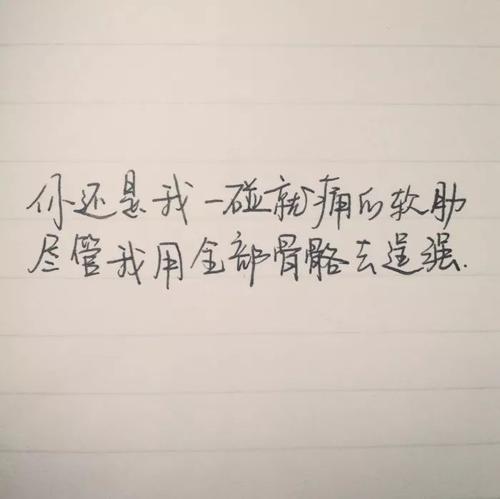 你还是我一碰就痛的软肋
尽管我用全部骨骼去逞强.